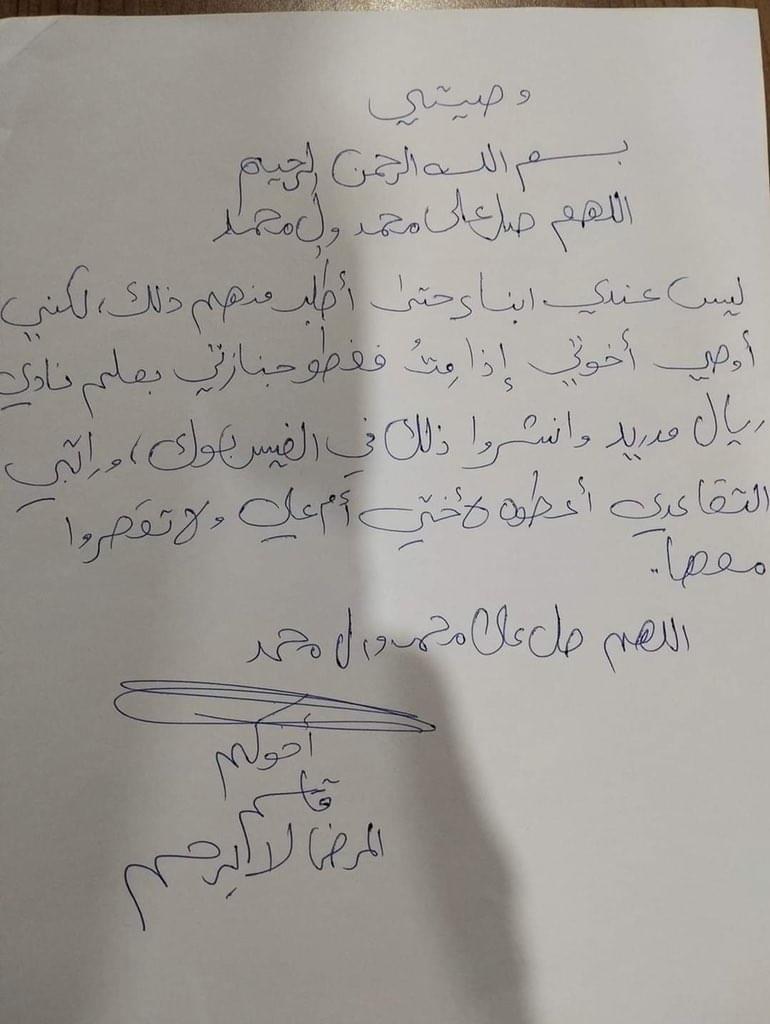 وصيتي
بسم الله الرحمن الرحيم
اللهم صل على محمد وال محمد
ليس عندي ابناء حتى أطلب منهم ذلك، لكني
أوصي أخوتي إذا مِتُ فغطو جنازتي بعلم نادي
ريال مدريد وانشروا ذلك في الفيس بوك، وراتبي
التقاعدي أعطوه لأختي أم علي ولا تقصروا
معها..
اللهم صل على محمد وال محمد
أخوكم
قاسم
المرض لا يرحم